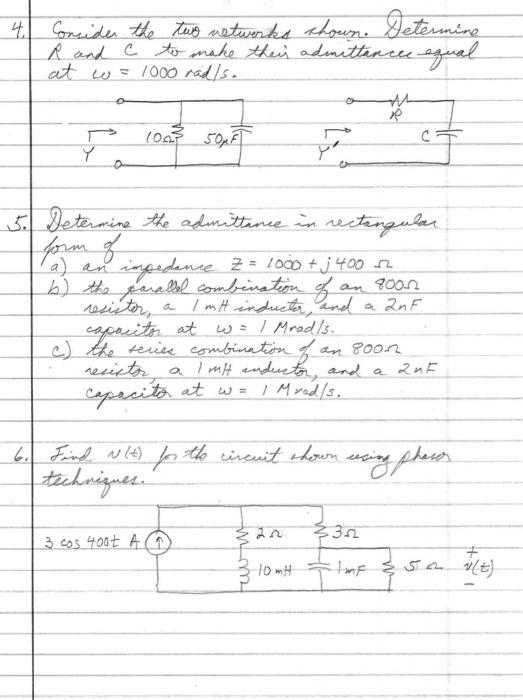 4. Consider the two networks shown. Determine
R and C to make their admittances equal
at ω = 1000 rad/s.
R
10Ω 50μF C
Y Y'
5. Determine the admittance in rectangular
form of
a) an impedance Z = 1000 + j400 Ω
b) the parallel combination of an 800Ω
resistor, a 1 mH inductor, and a 2nF
capacitor at ω = 1 Mrad/s.
c) the series combination of an 800Ω
resistor, a 1 mH inductor, and a 2nF
capacitor at ω = 1 Mrad/s.
6. Find v(t) for the circuit shown using phasor
techniques.
3 cos 400t A 2Ω 3Ω
10 mH 1mF 5Ω + v(t) -